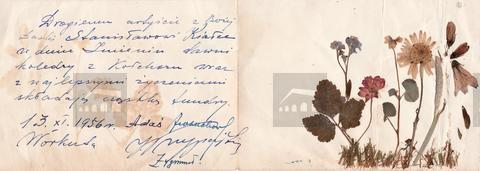 Drogiemu artyście z Bożej
Łaski Stanisławowi Kiałce
w dniu Imienin dawni
koledzy z Kołchozu wraz
z najlepszymi życzeniami
składają
13. XI. 1956 r. Adaś
Workuta
Zygmunt